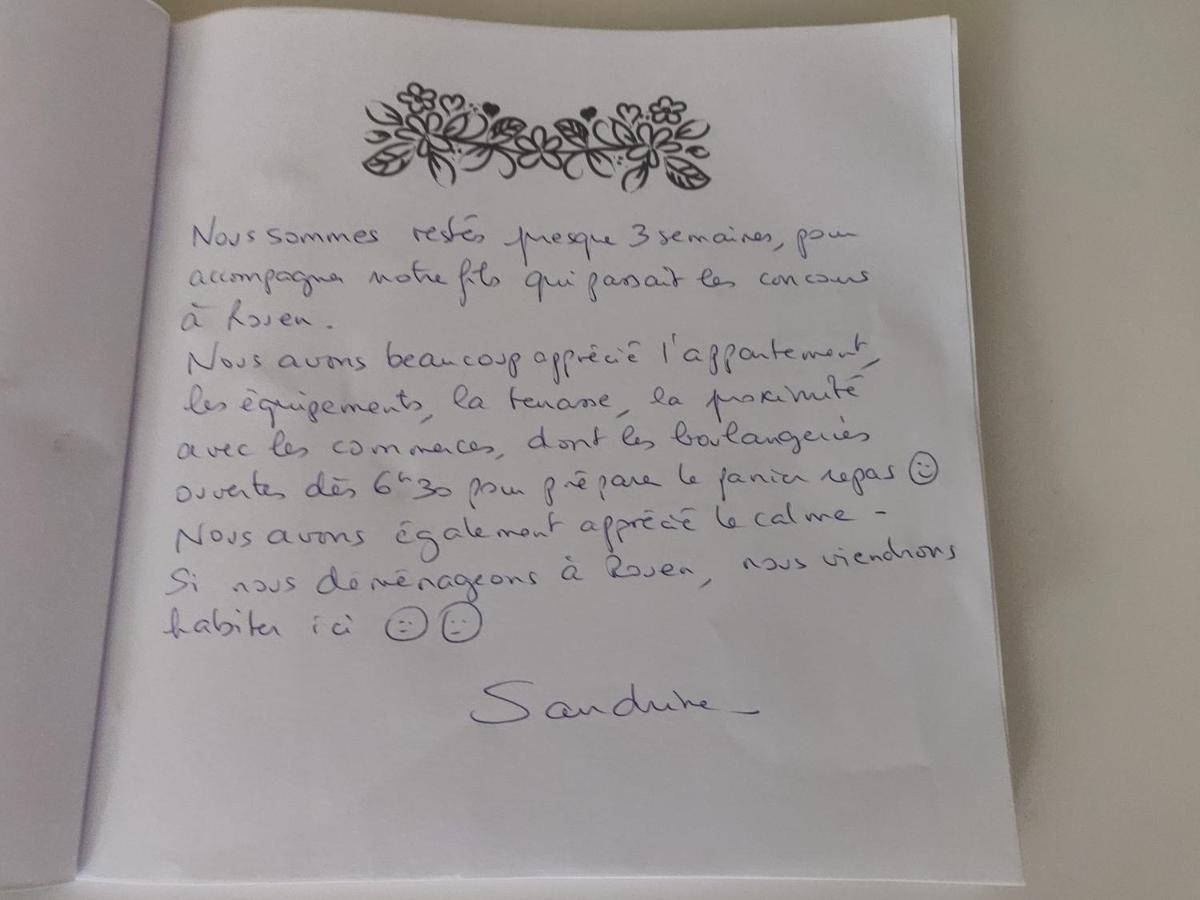 Nous sommes restés presque 3 semaines, pour
accompagner notre fils qui passait les concours
à Rouen.
Nous avons beaucoup apprécié l'appartement,
les équipements, la terrasse, la proximité
avec les commerces, dont les boulangeries
ouvertes dès 6h30 pour préparer le panier repas ☺
Nous avons également apprécié le calme -
Si nous déménageons à Rouen, nous viendrons
habiter ici ☺ ☺
Sandrine